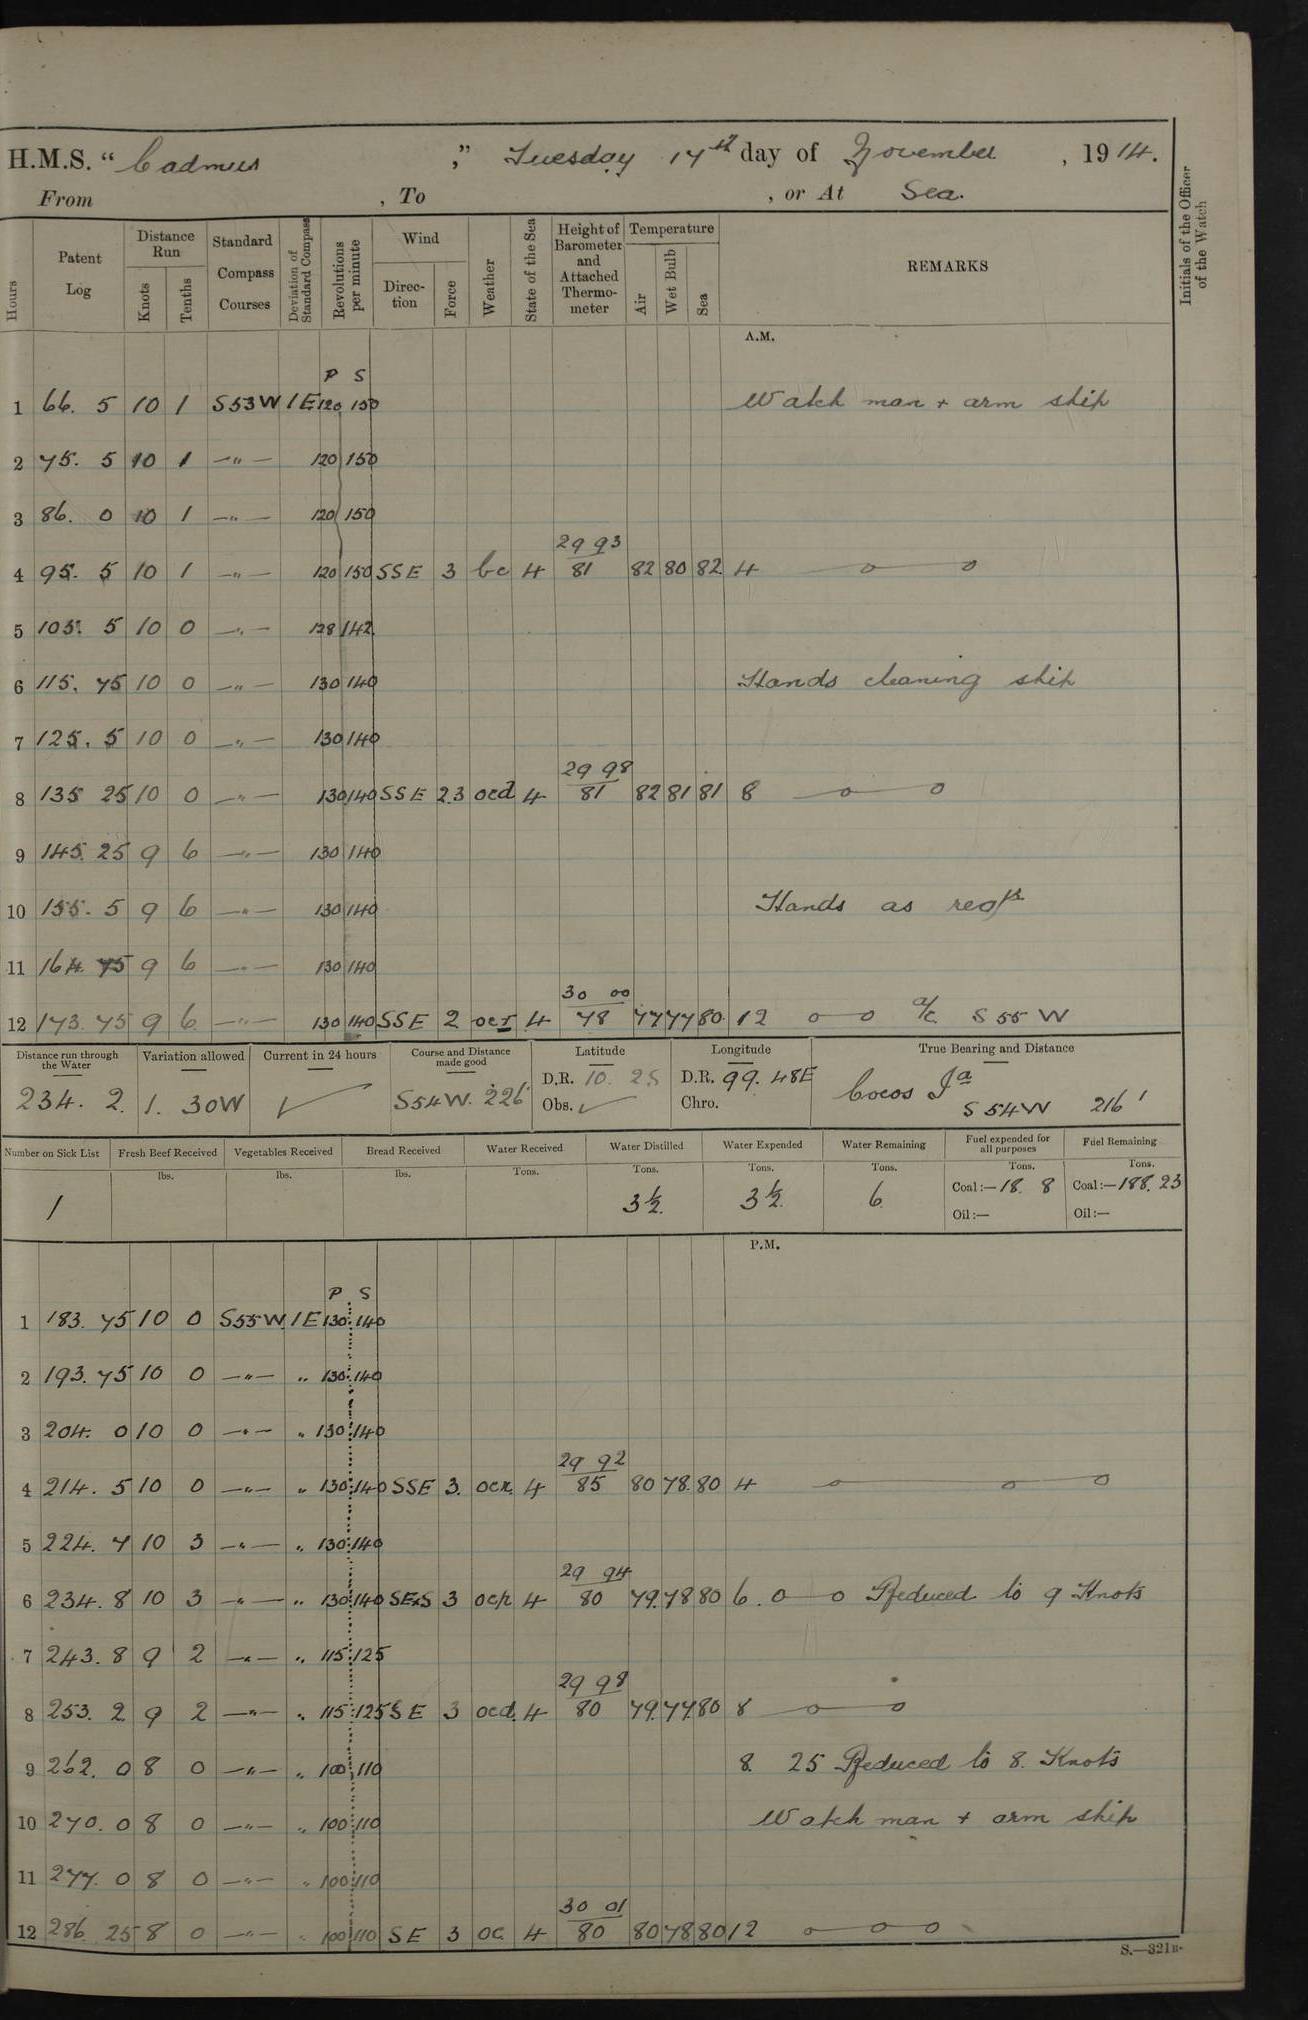 H.M.S. “ Cadmus ,” Tuesday 17th day of November , 1914.
From , To , or At Sea.
Hours
Patent Log
Distance Run
Knots
Tenths
Standard Compass Courses
Deviation of Standard Compass
Revolutions per minute
Wind
Direction
Force
Weather
State of the Sea
Height of Barometer and Attached Thermometer
Temperature
Air
Wet Bulb
Sea
REMARKS
Initials of the Officer of the Watch
A.M.
P S
1 66. 5 10 1 S53W 1E 120 150 Watch man + arm ship
2 75. 5 10 1 —"— 120 150
3 86. 0 10 1 —"— 120 150
29 93
4 95. 5 10 1 —"— 120 150 SSE 3 bc 4 81 82 80 82 4
5 105. 5 10 0 —"— 128 142
6 115. 75 10 0 —"— 130 140 Hands cleaning ship
7 125. 5 10 0 —"— 130 140
29 98
8 135 25 10 0 —"— 130 140 SSE 2.3 ocd 4 81 82 81 81 8
9 145. 25 9 6 —"— 130 140
10 155. 5 9 6 —"— 130 140 Hands as reqd
11 164. 75 9 6 —"— 130 140
30 00
12 173. 75 9 6 —"— 130 140 SSE 2 ocr 4 78 77 77 80 12 a/c S 55 W
Distance run through the Water
234. 2.
Variation allowed
1. 30W
Current in 24 hours
Course and Distance made good
S54W. 226'
Latitude
D.R. 10. 25
Obs.
Longitude
D.R. 99. 48E
Chro.
True Bearing and Distance
Cocos Ja
S 54W 216'
Number on Sick List
1
Fresh Beef Received
lbs.
Vegetables Received
lbs.
Bread Received
lbs.
Water Received
Tons.
Water Distilled
Tons.
3½.
Water Expended
Tons.
3½.
Water Remaining
Tons.
6
Fuel expended for all purposes
Tons.
Coal:— 18. 8
Oil:—
Fuel Remaining
Tons.
Coal:— 188. 23
Oil:—
P.M.
P S
1 183. 75 10 0 S55W. 1E 130 140
2 193. 75 10 0 —"— " 130 140
3 204. 0 10 0 —"— " 130 140
29 92
4 214. 5 10 0 —"— " 130 140 SSE 3. ocr. 4 85 80 78. 80 4
5 224. 7 10 3 —"— " 130 140
29 94
6 234. 8 10 3 —"— " 130 140 SExS 3 ocp 4 80 79. 78 80 6. Reduced to 9 Knots
7 243. 8 9 2 —"— " 115 125
29 98
8 253. 2 9 2 —"— " 115 125 SE 3 ocd. 4 80 79. 77. 80 8
9 262. 0 8 0 —"— " 100 110 8. 25 Reduced to 8. Knots
10 270. 0 8 0 —"— " 100 110 Watch man + arm ship
11 277. 0 8 0 —"— " 100 110
30 01
12 286. 25 8 0 —"— " 100 110 SE 3 oc. 4 80 80 78 80 12
S.—321B.